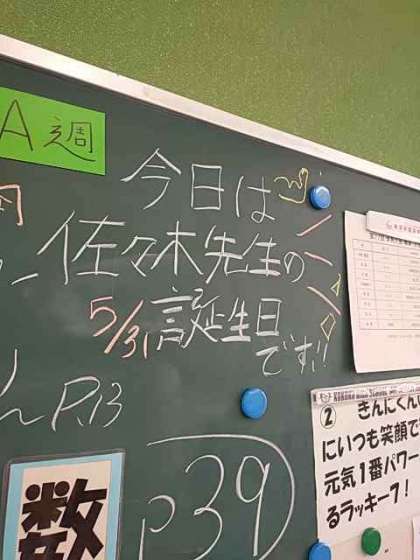 A週
今日は
佐々木先生の
5/31 誕生日
です!!
P.13
数
P39
②
きんにくん
にいつも笑顔で
元気1番パワー
るラッキー7!